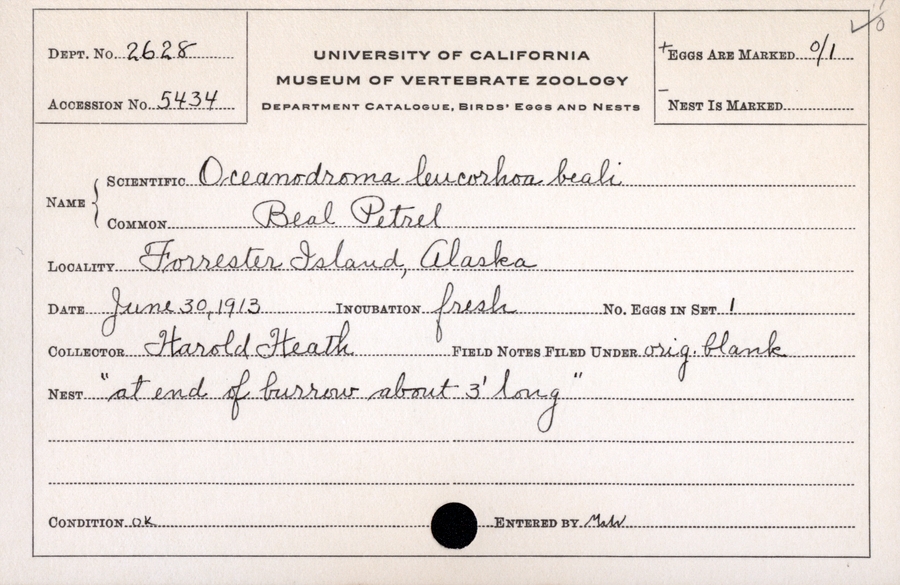 DEPT. No. 2628
ACCESSION No. 5434
UNIVERSITY OF CALIFORNIA
MUSEUM OF VERTEBRATE ZOOLOGY
DEPARTMENT CATALOGUE, BIRDS' EGGS AND NESTS
+ EGGS ARE MARKED 0/1
- NEST IS MARKED
NAME { SCIENTIFIC Oceanodroma leucorhoa beali
COMMON Beal Petrel
LOCALITY Forrester Island, Alaska
DATE June 30, 1913 INCUBATION fresh No. EGGS IN SET 1
COLLECTOR Harold Heath FIELD NOTES FILED UNDER orig. blank
NEST "at end of burrow about 3' long"
CONDITION OK ENTERED BY